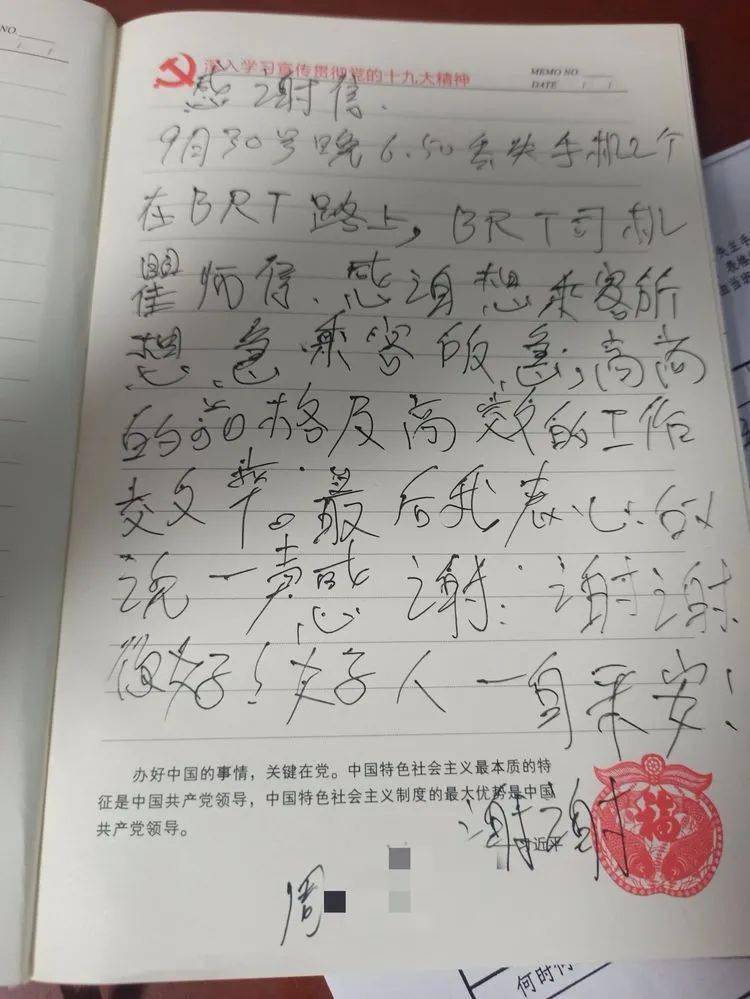 NO.
深入学习宣传贯彻党的十九大精神
MEMO NO.
DATE / /
感谢信.
9月30号晚6.50丢失手机2个
在BRT路上,BRT司机
师傅、感谢想乘客所
想,急乘客所急,高尚
的品格及高效的工作
效率。最后我衷心的
说一声感谢:谢谢
您好!好人一身平安!
办好中国的事情,关键在党。中国特色社会主义最本质的特
征是中国共产党领导,中国特色社会主义制度的最大优势是中国
共产党领导。
习近平
谢谢
福
周
何时何